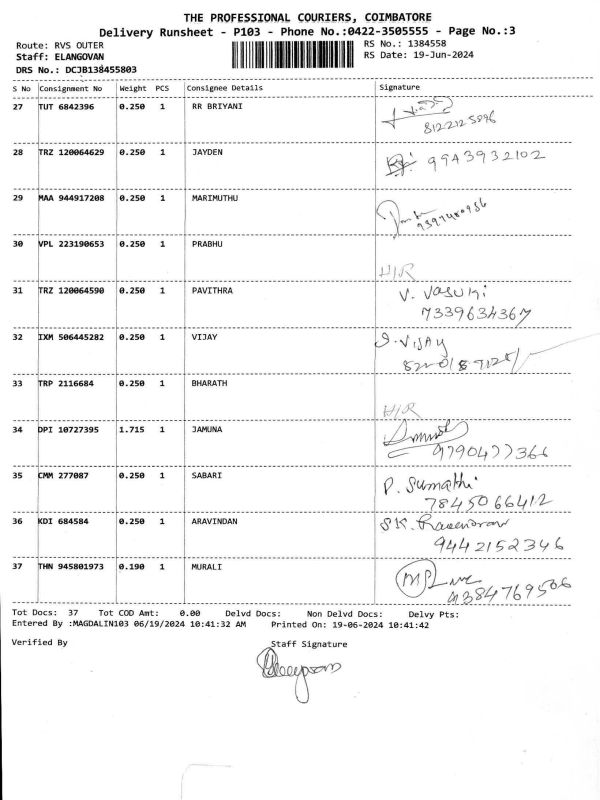 THE PROFESSIONAL COURIERS, COIMBATORE
Delivery Runsheet - P103 - Phone No.:0422-3505555 - Page No.:3
Route: RVS OUTER
RS No.: 1384558
Staff: ELANGOVAN
RS Date: 19-Jun-2024
DRS No.: DCJB138455803
S No Consignment No Weight PCS Consignee Details Signature
27 TUT 6842396 0.250 1 RR BRIYANI
8122125896
28 TRZ 120064629 0.250 1 JAYDEN 9943932102
29 MAA 944917208 0.250 1 MARIMUTHU
30 VPL 223190653 0.250 1 PRABHU
H/R
31 TRZ 120064590 0.250 1 PAVITHRA V. Vasuki
7339634367
32 IXM 506445282 0.250 1 VIJAY S.VIJAY
33 TRP 2116684 0.250 1 BHARATH
H/R
34 DPI 10727395 1.715 1 JAMUNA
9790477366
35 CMM 277087 0.250 1 SABARI P. Sumathi
7845066412
36 KDI 684584 0.250 1 ARAVINDAN S.K.
9442152346
37 THN 945801973 0.190 1 MURALI
9384769506
Tot Docs: 37 Tot COD Amt: 0.00 Delvd Docs: Non Delvd Docs: Delvy Pts:
Entered By :MAGDALIN103 06/19/2024 10:41:32 AM Printed On: 19-06-2024 10:41:42
Verified By Staff Signature